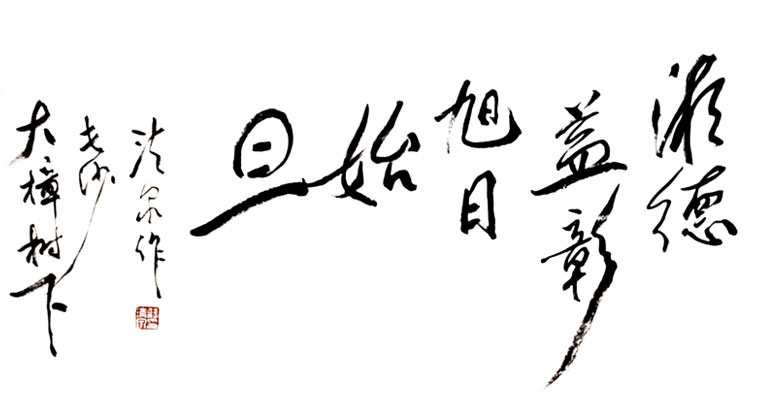 德
益彰
旭日
始
旦
作
长沙
大樟树下